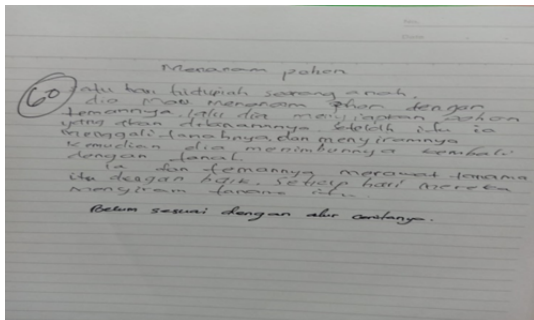 No.
Date
Menanam pohon
60
Satu hari hiduplah seorang anak.
dia mau menanam phon dengan
temannya. lalu dia menyiapkan pohon
yang akan ditanamnya. setelah itu ia
menggali tanahnya, dan menyiramnya
kemudian dia menimbunnya kembali
dengan tanah.
Ia dan temannya merawat tanama
itu dengan baik. setiap hari mereka
menyiram tanama itu.
Belum sesuai dengan alur ceritanya.